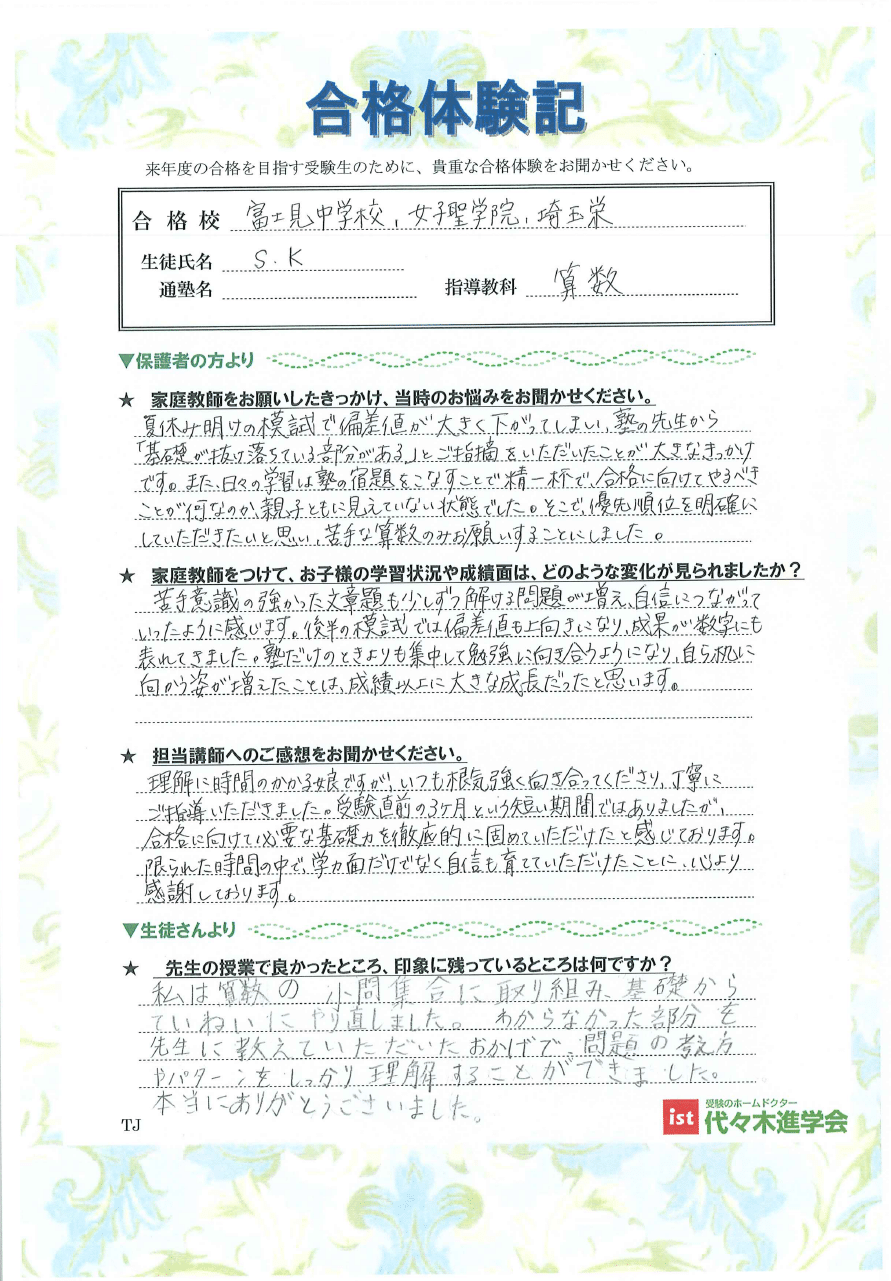 合格体験記
来年度の合格を目指す受験生のために、貴重な合格体験をお聞かせください。
合格校 富士見中学校, 女子聖学院, 埼玉栄
生徒氏名 S.K
通塾名
指導教科 算数
▼保護者の方より
★ 家庭教師をお願いしたきっかけ、当時のお悩みをお聞かせください。
夏休み明けの模試で偏差値が大きく下がってしまい、塾の先生から
「基礎が抜け落ちている部分がある」とご指摘をいただいたことが大きなきっかけ
です。また、日々の学習は塾の宿題をこなすことで精一杯で、合格に向けてやるべき
ことが何なのか、親子ともに見えていない状態でした。そこで、優先順位を明確に
していただきたいと思い、苦手な算数のみお願いすることにしました。
★ 家庭教師をつけて、お子様の学習状況や成績面は、どのような変化が見られましたか？
苦手意識の強かった文章題も少しずつ解ける問題が増え、自信につながって
いったように感じます。後半の模試では偏差値も上向きになり、成果が数字にも
表れてきました。塾だけのときよりも集中して勉強に向き合うようになり、自ら机に
向かう姿が増えたことは、成績以上に大きな成長だったと思います。
★ 担当講師へのご感想をお聞かせください。
理解に時間のかかる娘ですが、いつも根気強く向き合ってくださり、丁寧に
ご指導いただきました。受験直前の3ヶ月という短い期間ではありましたが、
合格に向けて必要な基礎力を徹底的に固めていただけたと感じております。
限られた時間の中で、学力面だけでなく自信も育てていただけたことに、心より
感謝しております。
▼生徒さんより
★ 先生の授業で良かったところ、印象に残っているところは何ですか？
私は算数の小問集合に取り組み、基礎から
ていねいにやり直しました。わからなかった部分を
先生に教えていただいたおかげで、問題の考え方
やパターンをしっかり理解することができました。
本当にありがとうございました。
TJ
ist 受験のホームドクター
代々木進学会